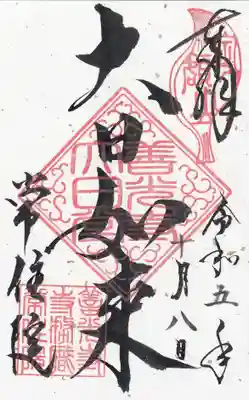 奉拝
令和五年
十月八日
大日如来
常住院